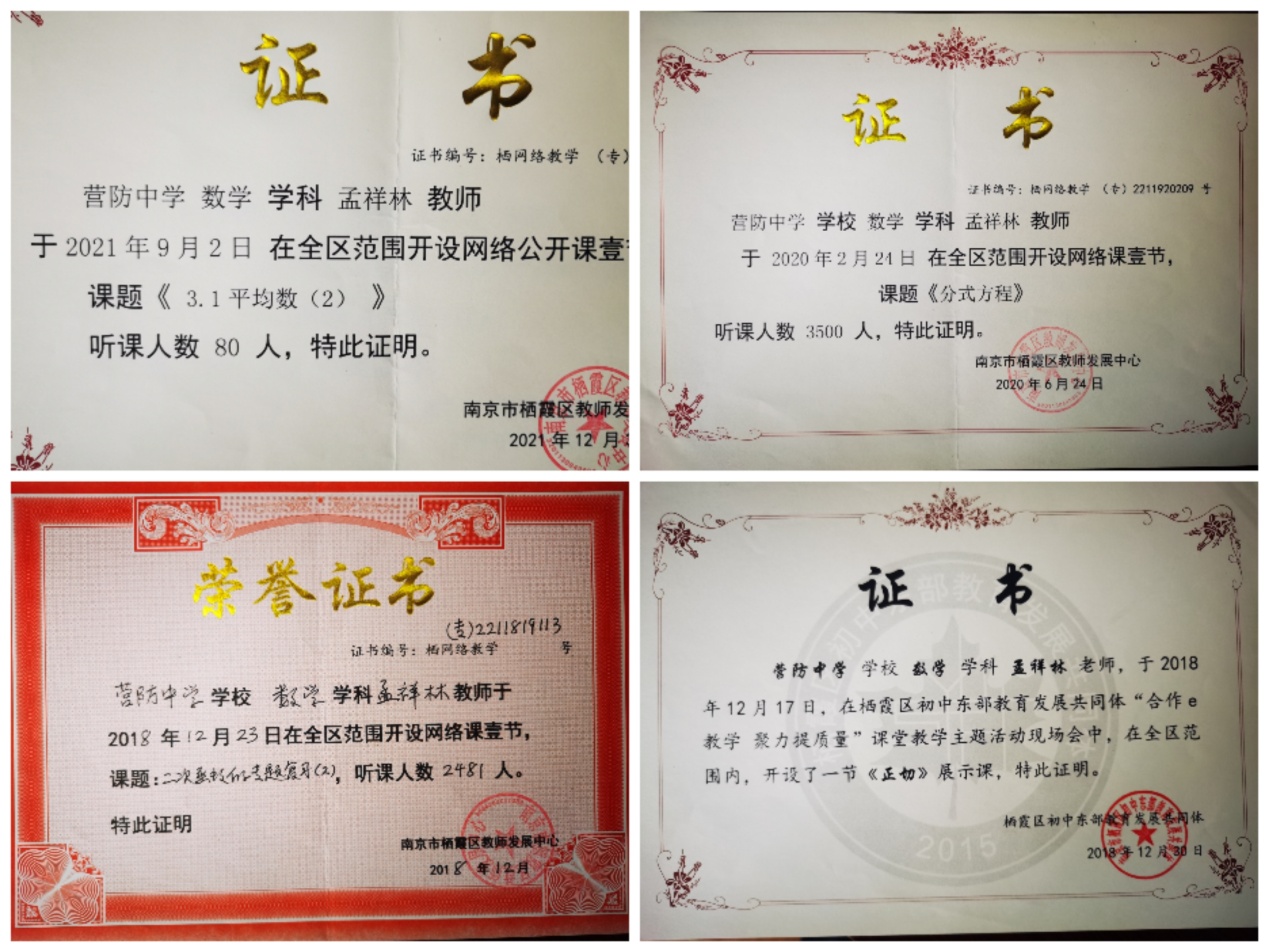 证书
证书编号：栖网络教学 （专）
营防中学 数学 学科 孟祥林 教师
于 2021 年 9 月 2 日 在全区范围开设网络公开课壹
课题《 3.1 平均数（2） 》
听课人数 80 人，特此证明。
南京市栖霞区教师发
2021 年 12 月
证书
证书编号：栖网络教学 （专）2211920209 号
营防中学 学校 数学 学科 孟祥林 教师
于 2020 年 2 月 24 日 在全区范围开设网络课壹节，
课题《分式方程》
听课人数 3500 人，特此证明。
南京市栖霞区教师发展中心
2020 年 6 月 24 日
荣誉证书
(专)2211819113
证书编号：栖网络教学 号
营防中学 学校 数学 学科 孟祥林 教师于
2018 年 12 月 23 日在全区范围开设网络课壹节，
课题：二次函数的专题复习(2)，听课人数 2481 人。
特此证明
南京市栖霞区教师发展中心
2018 年 12 月
证书
营防中学 学校 数学 学科 孟祥林 老师，于 2018
年 12 月 17 日，在栖霞区初中东部教育发展共同体“合作 e
教学 聚力提质量”课堂教学主题活动现场会中，在全区范
围内，开设了一节《正切》展示课，特此证明。
栖霞区初中东部教育发展共同体
2018 年 12 月 30 日
2015